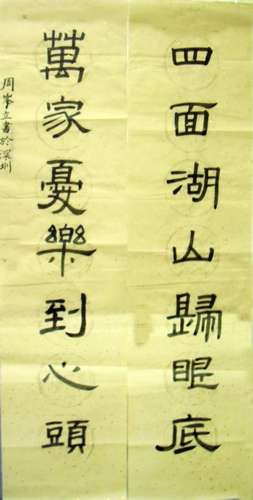 四面湖山歸眼底
萬家憂樂到心頭
周峯立書於深圳